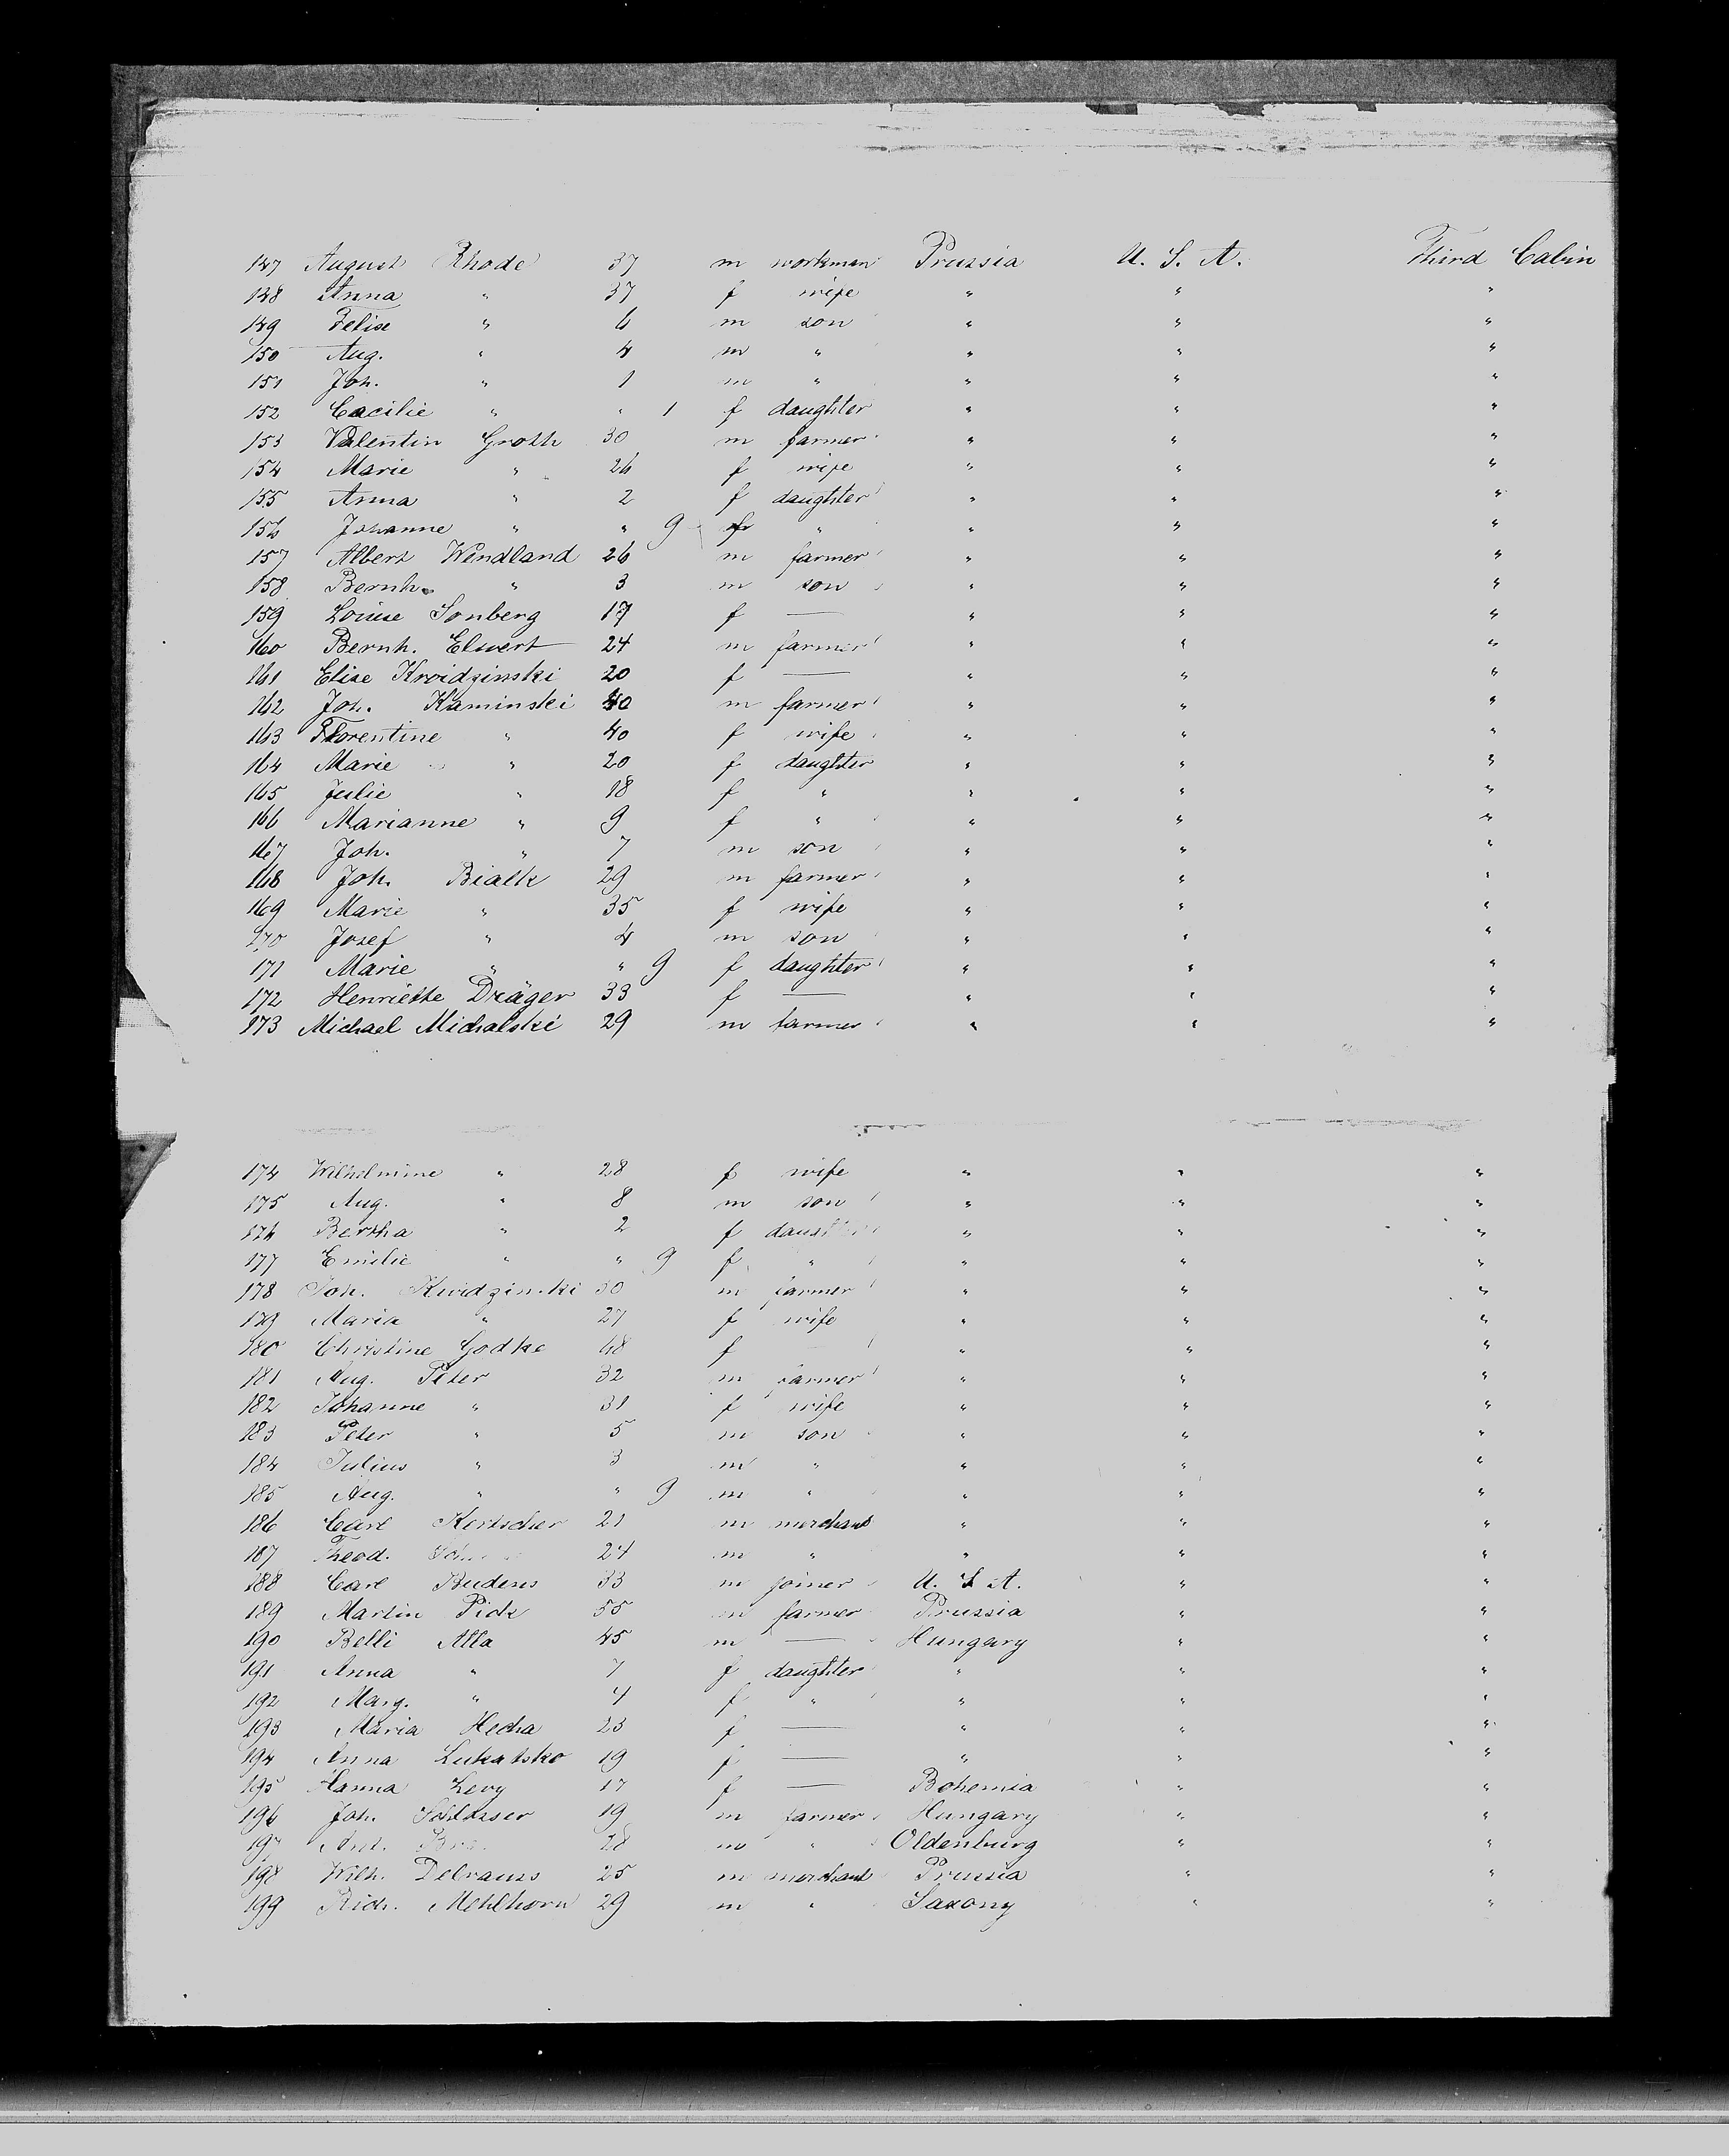 147 August Rhode 37 m workman Prussia U. S. A. Third Cabin
148 Anna " 37 f wife " " "
149 Felix " 6 m son " " "
150 Aug. " 4 m " " " "
151 Joh. " 1 m " " " "
152 Cacilie " " 1 f daughter " " "
153 Valentin Groth 30 m farmer " " "
154 Marie " 26 f wife " " "
155 Anna " 2 f daughter " " "
156 Johanne " " 9 f " " " "
157 Albert Wendland 26 m farmer " " "
158 Bernh. " 3 m son " " "
159 Louise Sonberg 17 f — " " "
160 Bernh. Elwert 24 m farmer " " "
161 Elise Kwidzinski 20 f — " " "
162 Joh. Kaminski 40 m farmer " " "
163 Florentine " 40 f wife " " "
164 Marie " 20 f daughter " " "
165 Julie " 18 f " " " "
166 Marianne " 9 f " " " "
167 Joh. " 7 m son " " "
168 Joh. Bialk 29 m farmer " " "
169 Marie " 35 f wife " " "
170 Josef " 4 m son " " "
171 Marie " " 9 f daughter " " "
172 Henriette Dräger 33 f — " " "
173 Michael Michalski 29 m farmer " " "
174 Wilhelmine " 28 f wife " " "
175 Aug. " 8 m son " " "
176 Bertha " 2 f daughter " " "
177 Emilie " " 9 f " " " "
178 Joh. Kwidzinski 30 m farmer " " "
179 Maria " 27 f wife " " "
180 Christine Godtke 48 f — " " "
181 Aug. Peter 32 m farmer " " "
182 Johanne " 31 f wife " " "
183 Peter " 5 m son " " "
184 Julius " 3 m " " " "
185 Aug. " " 9 m " " " "
186 Carl Kertscher 21 m merchant " " "
187 Theod. 24 m " " " "
188 Carl Budens 33 m joiner U. S. A. " "
189 Martin Pick 55 m farmer Prussia " "
190 Belli Alla 45 m — Hungary " "
191 Anna " 7 f daughter " " "
192 Marg. " 4 f " " " "
193 Maria Hecha 23 f — " " "
194 Anna Lukatsko 19 f — " " "
195 Hanna Levy 17 f — Bohemia " "
196 Joh. Schlosser 19 m farmer Hungary " "
197 28 m " Oldenburg " "
198 Wilh. Delbrauss 25 m merchant Prussia " "
199 Rich. Mehlhorn 29 m " Saxony " "